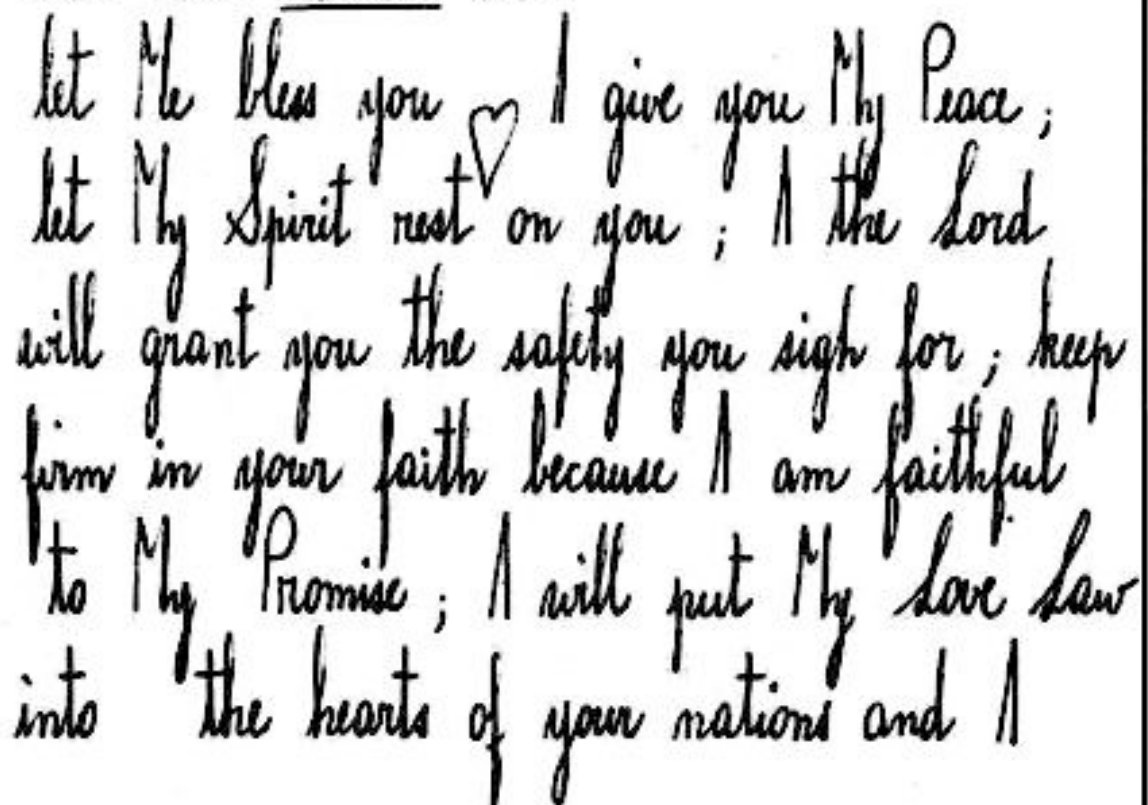 let Me bless you ♡ I give you My Peace ;
let My Spirit rest on you ; I the Lord
will grant you the safety you sigh for ; keep
firm in your faith because I am faithful
to My Promise ; I will put My Love Law
into the hearts of your nations and I